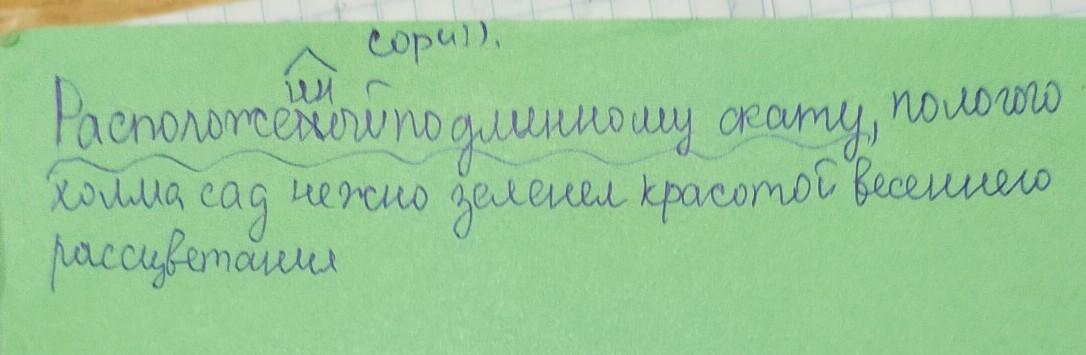 нн
Расположеной по длинному скату, пологого
холма сад нежно зеленел красотой весеннего
рассцветания